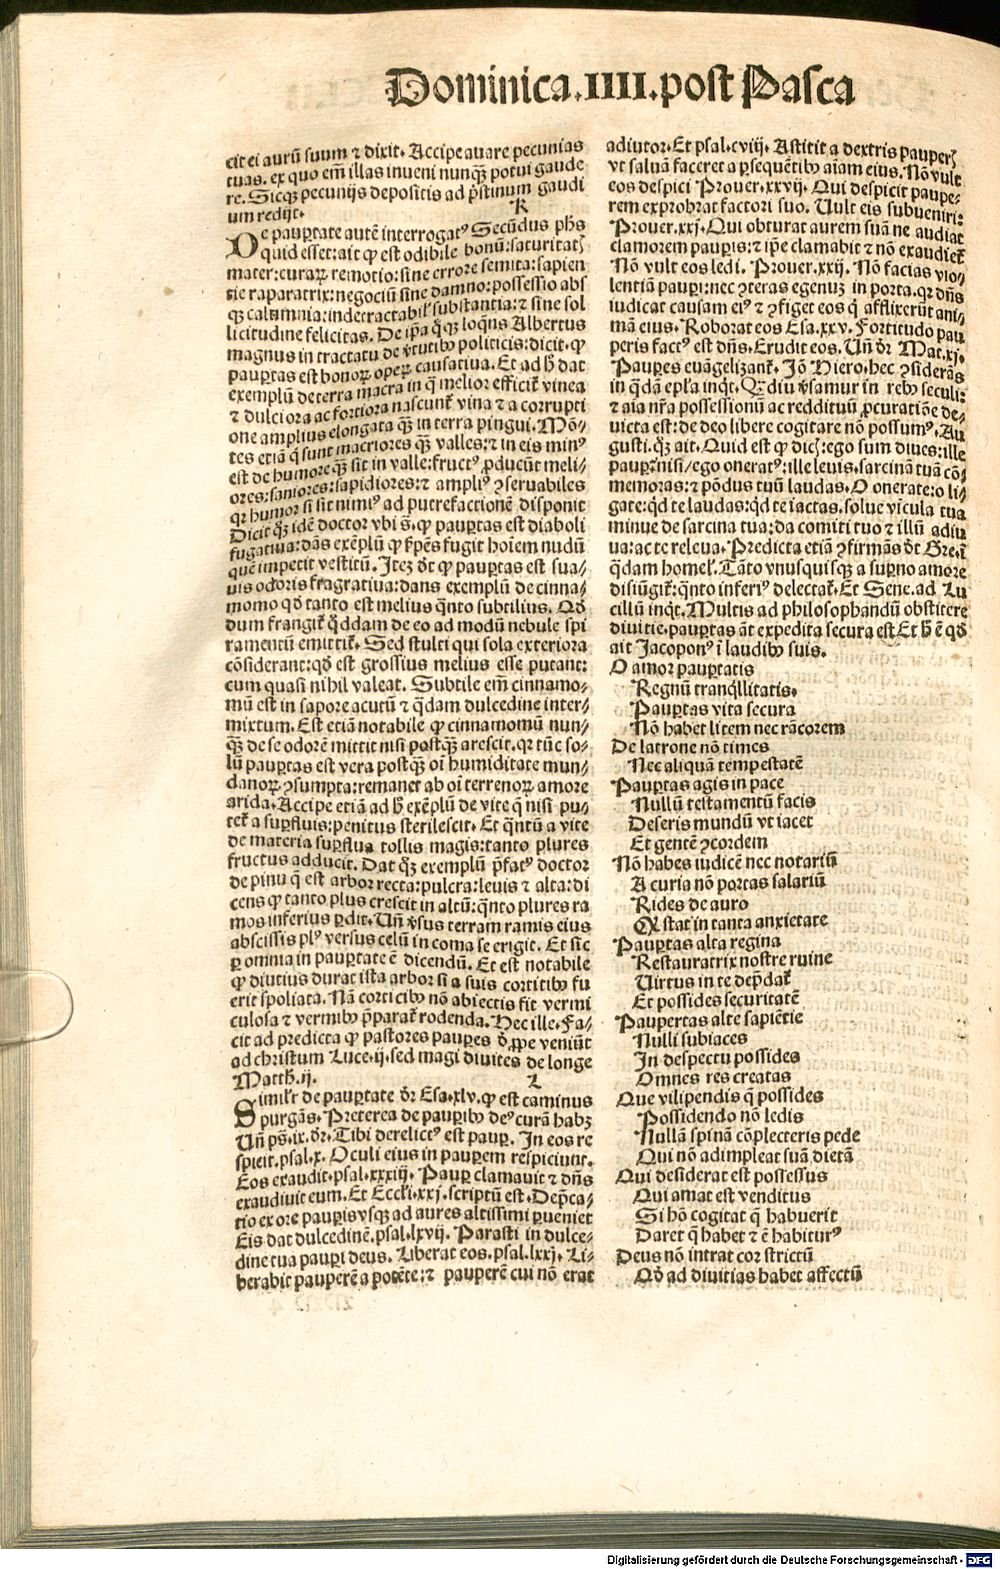 Dominica.IIII.post Pasca
cit ei aurū suum ⁊ dixit. Accipe auare pecunias
tuas. ex quo em̄ illas inueni nunqꝫ potui gaude
re. Sicqꝫ pecunijs depositis ad pristinum gaudi
um redijt.
K
De paup̱tate autē interrogatꝰ Secūdus ph̄s
quid esset: ait ꝙ est odibile bonū: sanitatū
mater: curaꝝ remotio: sine errore semita: sapien
tie raparatrix: negociū sine damno: possessio abs
qꝫ calumnia: indetractabil' substantia: ⁊ sine sol
licitudine felicitas. De ip̄a q̊qꝫ loquꝰ Albertus
magnus in tractatu de v̓tutibꝰ politicis: dicit. ꝙ
paup̱tas est honoꝝ opeꝝ causatiua. Et ad h̓ dat
exemplū de terra macra in q̄ melior efficit᷑ vinea
⁊ dulciora ac fortiora nascunt᷑ vina ⁊ a corrupti
one amplius elongata qꝫ in terra pingui. Mō⸗
tes etiā q̄ sunt macriores qꝫ valles: ⁊ in eis minꝰ
est de humore qꝫ sit in valle: fructꝰ ꝓducūt meli⸗
ores: saniores: sapidiores: ⁊ ampliꝰ ꝯseruabiles
qꝛ humor si sit nimiꝰ ad putrefactionē disponit
Dicit qꝫ idē doctor vbi s̄. ꝙ paup̱tas est diaboli
fugatiua: dās exēplū ꝙ s̓pēs fugit hoīem nudū
quē impetit vestitū. Itez d̓r ꝙ paup̱tas est sua⸗
uis odoris fragratiua: dans exemplū de cinna⸗
momo qd̓ tanto est melius q̄nto subtilius. Qd̓
dum frangit᷑ q̊ddam de eo ad modū nebule spi
ramentū emittit᷑. Sed stulti qui sola exteriora
cōsiderant: qd̓ est grossius melius esse putant:
cum quasi nihil valeat. Subtile em̄ cinnamo⸗
mū est in sapore acutū ⁊ q̄dam dulcedine inter⸗
mixtum. Est etiā notabile ꝙ cinnamomū nun⸗
qꝫ de se odorē mittit nisi postqꝫ arescit. qꝛ tūc so⸗
lū paup̱tas est vera postqꝫ oī humiditate mun⸗
danoꝝ ꝯsumpta: remanet ab oī terrenoꝝ amore
arida. Accipe etiā ad h̓ exēplū de vite q̄ nisi pu⸗
tet᷑ a sup̱fluis: penitus sterilescit. Et q̄ntū a vite
de materia sup̱flua tollis magis: tanto plures
fructus adducit. Dat qꝫ exemplū p̄fatꝰ doctor
de pinu q̄ est arbor recta: pulcra: leuis ⁊ alta: di
cens ꝙ tanto plus crescit in altū: q̄nto plures ra
mos inferius p̱dit. Vn̄ v̓sus terram ramis eius
abscissis plꝰ versus celū in coma se erigit. Et sic
ꝑ omnia in paup̱tate ē dicendū. Et est notabile
ꝙ diutius durat ista arbor si a suis corticibꝰ fu
erit spoliata. Nā corticibꝰ nō abiectis fit vermi
culosa ⁊ vermibꝰ p̄parat᷑ rodenda. Hec ille. Fa⸗
cit ad predicta ꝙ pastores paup̱es d̓ ꝓpe veniūt
ad christum Luce.ij. sed magi diuites de longe
Matth.ij.
L
Similr̄ de paup̱tate d̓r Esa.xlv. ꝙ est caminus
purgās. Preterea de paup̱ibꝰ deꝰ curā habꝫ
Vn̄ ps̄.ix. d̓r. Tibi derelictꝰ est paup̱. In eos re
spicit. psal.x. Oculi eius in paup̱em respiciunt.
Eos exaudit. psal.xxxiij. Paup̱ clamauit ⁊ dn̄s
exaudiuit eum. Et Eccl'i.xxj. scriptū est. Dep̄ca⸗
tio ex ore paup̱is vsqꝫ ad aures altissimi p̱ueniet
Eis dat dulcedinē. psal.lxvij. Parasti in dulce⸗
dine tua paup̱i deus. Liberat eos. psal.lxxj. Li⸗
berabit pauperē a potēte: ⁊ pauperē cui nō erat
adiutor. Et psal.cviij. Astitit a dextris pauperꝭ
vt saluā faceret a ꝑsequētibꝰ aīam eius. Nō vult
eos despici Prouer.xxvij. Qui despicit paupe⸗
rem exprobrat factori suo. Vult eis subueniri:
Prouer.xxj. Qui obturat aurem suā ne audiat
clamorem paup̱is: ⁊ ip̄e clamabit ⁊ nō exaudiet᷑
Nō vult eos ledi. Prouer.xxij. Nō facias vio⸗
lentiā paup̱i: nec ꝯteras egenuꝫ in porta. qꝛ dn̄s
iudicat causam eiꝰ ⁊ ꝯfiget eos q̇ afflixerūt ani⸗
mā eius. Roborat eos Esa.xxv. Fortitudo pau
peris factꝰ est dn̄s. Erudit eos. Vn̄ d̓r Mat.xj.
Paup̱es euāgelizant᷑. Jō Hiero. hec ꝯsiderās
in q̄dā ep̄la inq̇t. Qꝫdiu v̓samur in rebꝰ seculi:
⁊ aīa nr̄a possessionū ac reddituū ꝓcuratiōe de⸗
uicta est: de deo libere cogitare nō possumꝰ. Au
gusti. qꝫ ait. Quid est ꝙ dicꝭ: ego sum diues: ille
paup̱: nisi / ego oneratꝰ: ille leuis. sarcinā tuā cō⸗
memoras: ⁊ pōdus tuū laudas. O onerate: o li⸗
gate: qd̓ te laudas: qd̓ te iactas. solue vīcula tua
minue de sarcina tua: da comiti tuo ⁊ illū adiu
ua: ac te releua. Predicta etiā ꝯfirmās d̓t Gre. ī
q̄dam homel'. Tāto vnusquisqꝫ a sup̱no amore
disiūgit᷑: q̄nto inferiꝰ delectat᷑. Et Sene. ad Lu
cillū inq̇t. Multis ad philosophandū obstitere
diuitie. paup̱tas āt expedita secura est Et h̓ ē qd̓
ait Jacoponꝰ ī laudibꝰ suis.
O amor paup̱tatis
Regnū tranq̇llitatis.
Paup̱tas vita secura
Nō habet litem nec rācorem
De latrone nō times
Nec aliquā tempestatē
Paup̱tas agis in pace
Nullū testamentū facis
Deseris mundū vt iacet
Et gentē ꝯcordem
Nō habes iudicē nec notariū
A curia nō portas salariū
Rides de auro
Qꝭ stat in tanta anxietate
Paup̱tas alta regina
Restauratrix nostre ruine
Virtus in te dep̄dat᷑
Et possides securitatē
Paupertas alte sapiētie
Nulli subiaces
In despectu possides
Omnes res creatas
Que vilipendis q̄ possides
Possidendo nō ledis
Nullā spinā cōplecteris pede
Qui nō adimpleat suā dietā
Qui desiderat est possessus
Qui amat est venditus
Si hō cogitat q̄ habuerit
Daret q̄ habet ⁊ ē habiturꝰ
Deus nō intrat cor strictū
Qd̓ ad diuitias habet affectū
Digitalisierung gefördert durch die Deutsche Forschungsgemeinschaft - DFG